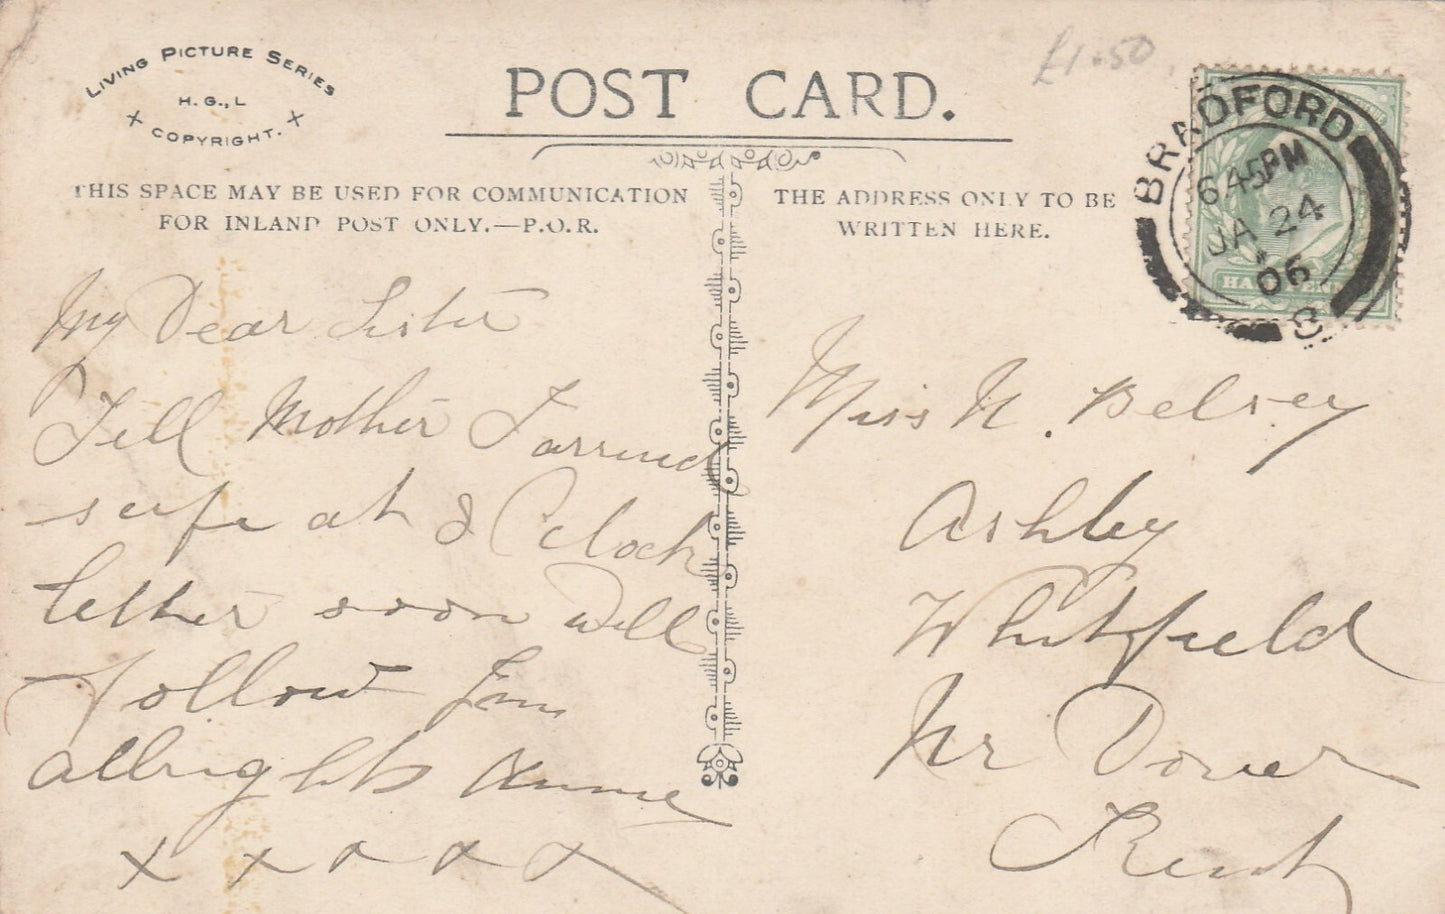 LIVING PICTURE SERIES
H. G., L
COPYRIGHT.
POST CARD.
£1.50
THIS SPACE MAY BE USED FOR COMMUNICATION
FOR INLAND POST ONLY.—P.O.R.
THE ADDRESS ONLY TO BE
WRITTEN HERE.
BRADFORD
6 45PM
JA 24
06
8
My Dear Sister
Tell Mother I arrived
safe at 8 O'clock
letter soon Will
follow I'm
allright Annie
x x x x x
Miss N. Belsey
Ashley
Whitfield
Nr Dover
Kent